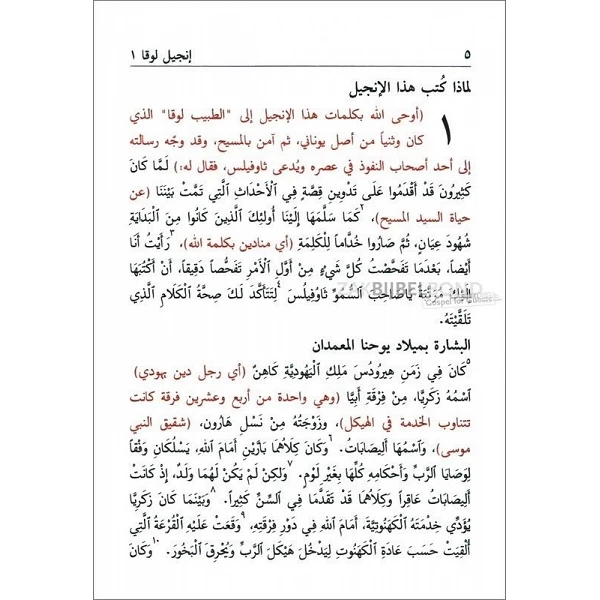 إنجيل لوقا ١ ٥
لماذا كُتب هذا الإنجيل
١ (أوحى الله بكلمات هذا الإنجيل إلى "الطبيب لوقا" الذي
كان وثنياً من أصل يوناني، ثم آمن بالمسيح، وقد وجّه رسالته
إلى أحد أصحاب النفوذ في عصره ويُدعى ثاوفيلس، فقال له:) لَمَّا كَانَ
كَثِيرُونَ قَدْ أَقْدَمُوا عَلَى تَدْوِينِ قِصَّةٍ فِي ٱلْأَحْدَاثِ ٱلَّتِي تَمَّتْ بَيْنَنَا (عن
حياة السيد المسيح)، ٢كَمَا سَلَّمَهَا إِلَيْنَا أُولئِكَ ٱلَّذِينَ كَانُوا مِنَ ٱلْبَدَايَةِ
شُهُودَ عِيَانٍ، ثُمَّ صَارُوا خُدَّاماً لِلْكَلِمَةِ (أي منادين بكلمة الله)، ٣رَأَيْتُ أَنَا
أَيْضاً، بَعْدَمَا تَفَحَّصْتُ كُلَّ شَيْءٍ مِنْ أَوَّلِ ٱلْأَمْرِ تَفَحُّصاً دَقِيقاً، أَنْ أَكْتُبَهَا
إِلَيْكَ مُرَتَّبَةً يَاصَاحِبَ ٱلسُّمُوِّ ثَاوُفِيلُسَ ٤لِتَتَأَكَّدَ لَكَ صِحَّةُ ٱلْكَلَامِ ٱلَّذِي
تَلَقَّيْتَهُ.
البشارة بميلاد يوحنا المعمدان
٥كَانَ فِي زَمَنِ هِيرُودُسَ مَلِكِ ٱلْيَهُودِيَّةِ كَاهِنٌ (أي رجل دين يهودي)
ٱسْمُهُ زَكَرِيَّا، مِنْ فِرْقَةِ أَبِيَّا (وهي واحدة من أربع وعشرين فرقة كانت
تتناوب الخدمة في الهيكل)، وَزَوْجَتُهُ مِنْ نَسْلِ هَارُونَ، (شقيق النبي
موسى)، وَٱسْمُهَا أَلِيصَابَاتُ. ٦وَكَانَ كِلَاهُمَا بَارَّيْنِ أَمَامَ ٱللهِ، يَسْلُكَانِ وَفْقاً
لِوَصَايَا ٱلرَّبِّ وَأَحْكَامِهِ كُلِّهَا بِغَيْرِ لَوْمٍ. ٧وَلكِنْ لَمْ يَكُنْ لَهُمَا وَلَدٌ، إِذْ كَانَتْ
أَلِيصَابَاتُ عَاقِراً وَكِلَاهُمَا قَدْ تَقَدَّمَا فِي ٱلسِّنِّ كَثِيراً. ٨وَبَيْنَمَا كَانَ زَكَرِيَّا
يُؤَدِّي خِدْمَتَهُ ٱلْكَهْنُوتِيَّةَ، أَمَامَ ٱللهِ فِي دَوْرِ فِرْقَتِهِ، ٩وَقَعَتْ عَلَيْهِ ٱلْقُرْعَةُ ٱلَّتِي
أُلْقِيَتْ حَسَبَ عَادَةِ ٱلْكَهَنُوتِ لِيَدْخُلَ هَيْكَلَ ٱلرَّبِّ وَيُحْرِقَ ٱلْبَخُورَ. ١٠وَكَانَ